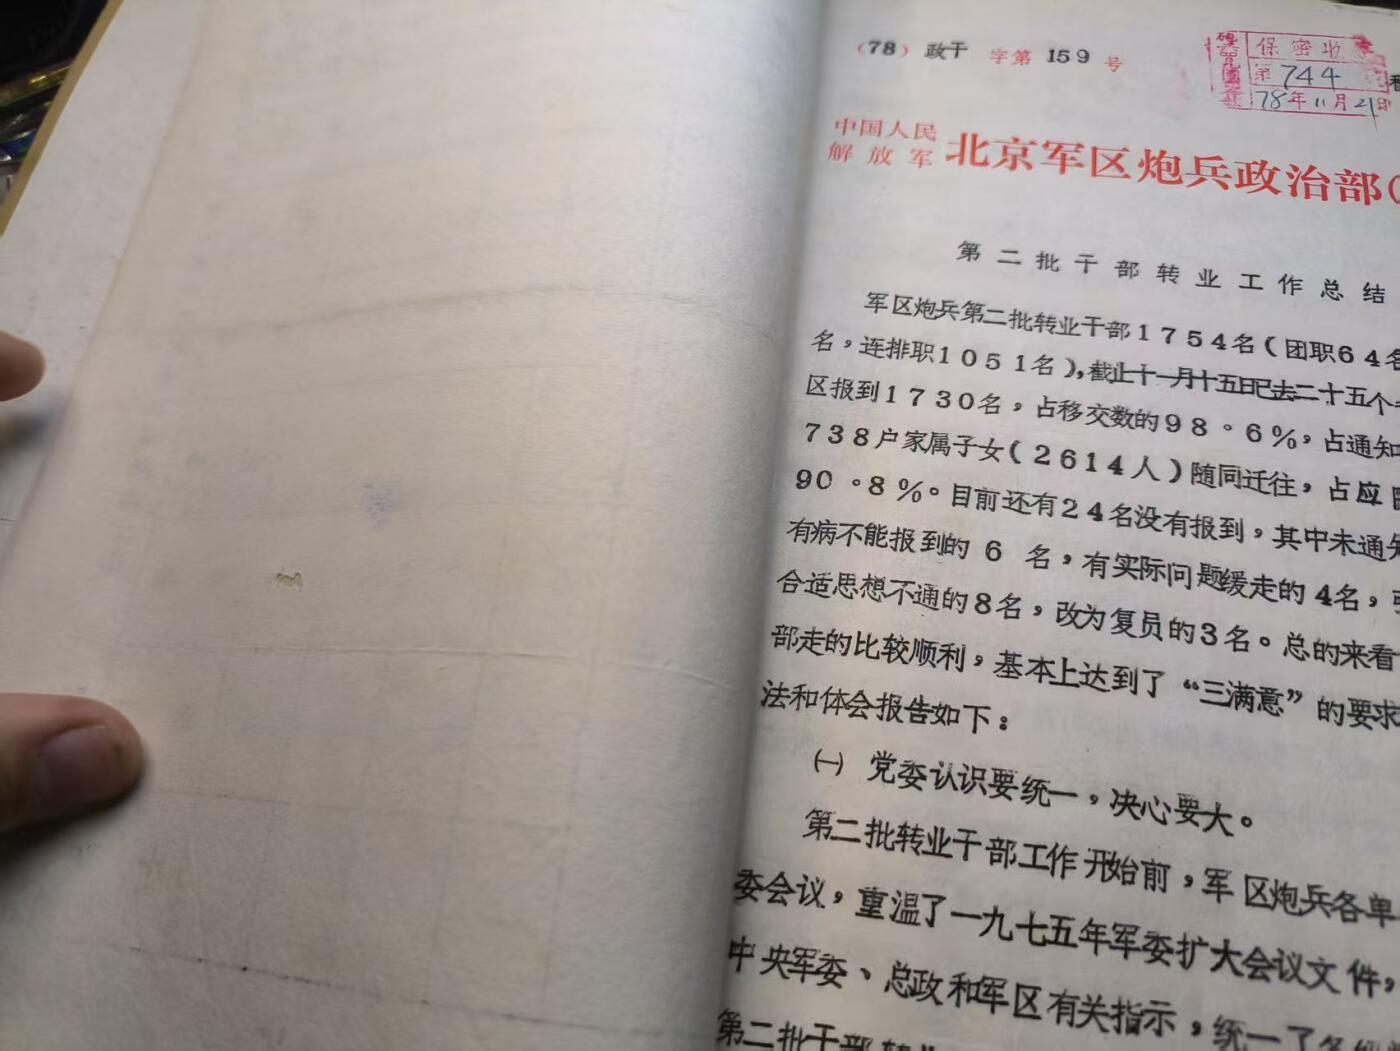 (78) 政干 字第 159 号
保密收
第 744
78年11月21
中国人民
解放军 北京军区炮兵政治部(
第二批干部转业工作总结
军区炮兵第二批转业干部1754名(团职64名
名,连排职1051名),截止十一月十五日已去二十五个
区报到1730名,占移交数的98。6%,占通知
738户家属子女(2614人)随同迁往,占应
90。8%。目前还有24名没有报到,其中未通知
有病不能报到的 6 名,有实际问题缓走的 4名,
合适思想不通的8名,改为复员的3名。总的来看
部走的比较顺利,基本上达到了“三满意”的要求
法和体会报告如下:
㈠ 党委认识要统一,决心要大。
第二批转业干部工作开始前,军区炮兵各单
委会议,重温了一九七五年军委扩大会议文件,
中央军委、总政和军区有关指示,统一了各级
第二批干部转业